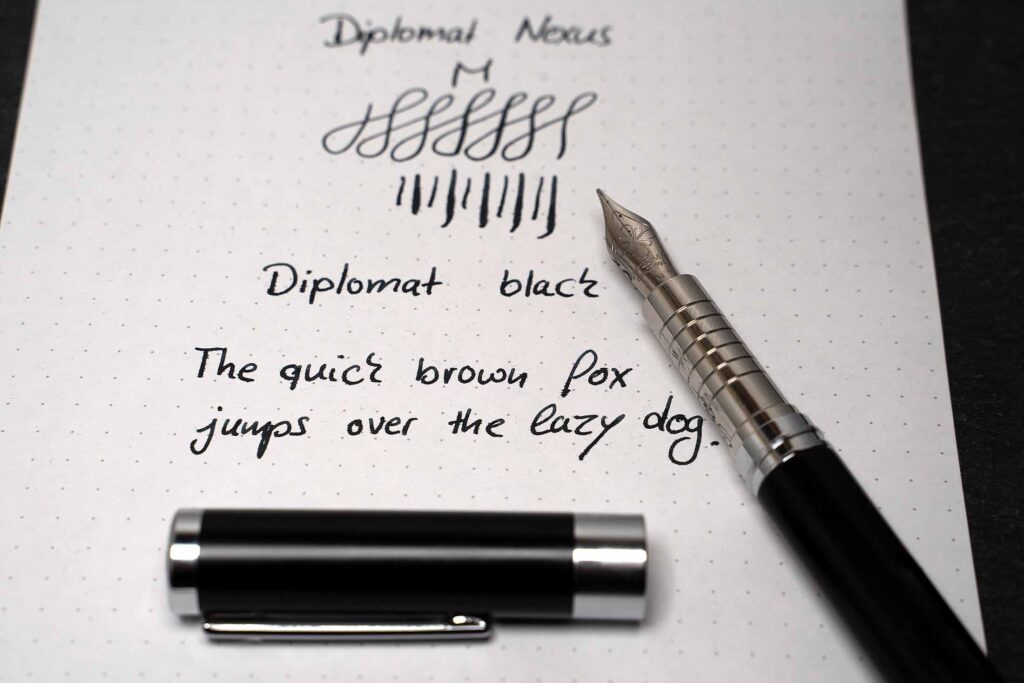 Diplomat Nexus
M
Diplomat black
The quick brown fox
jumps over the lazy dog.